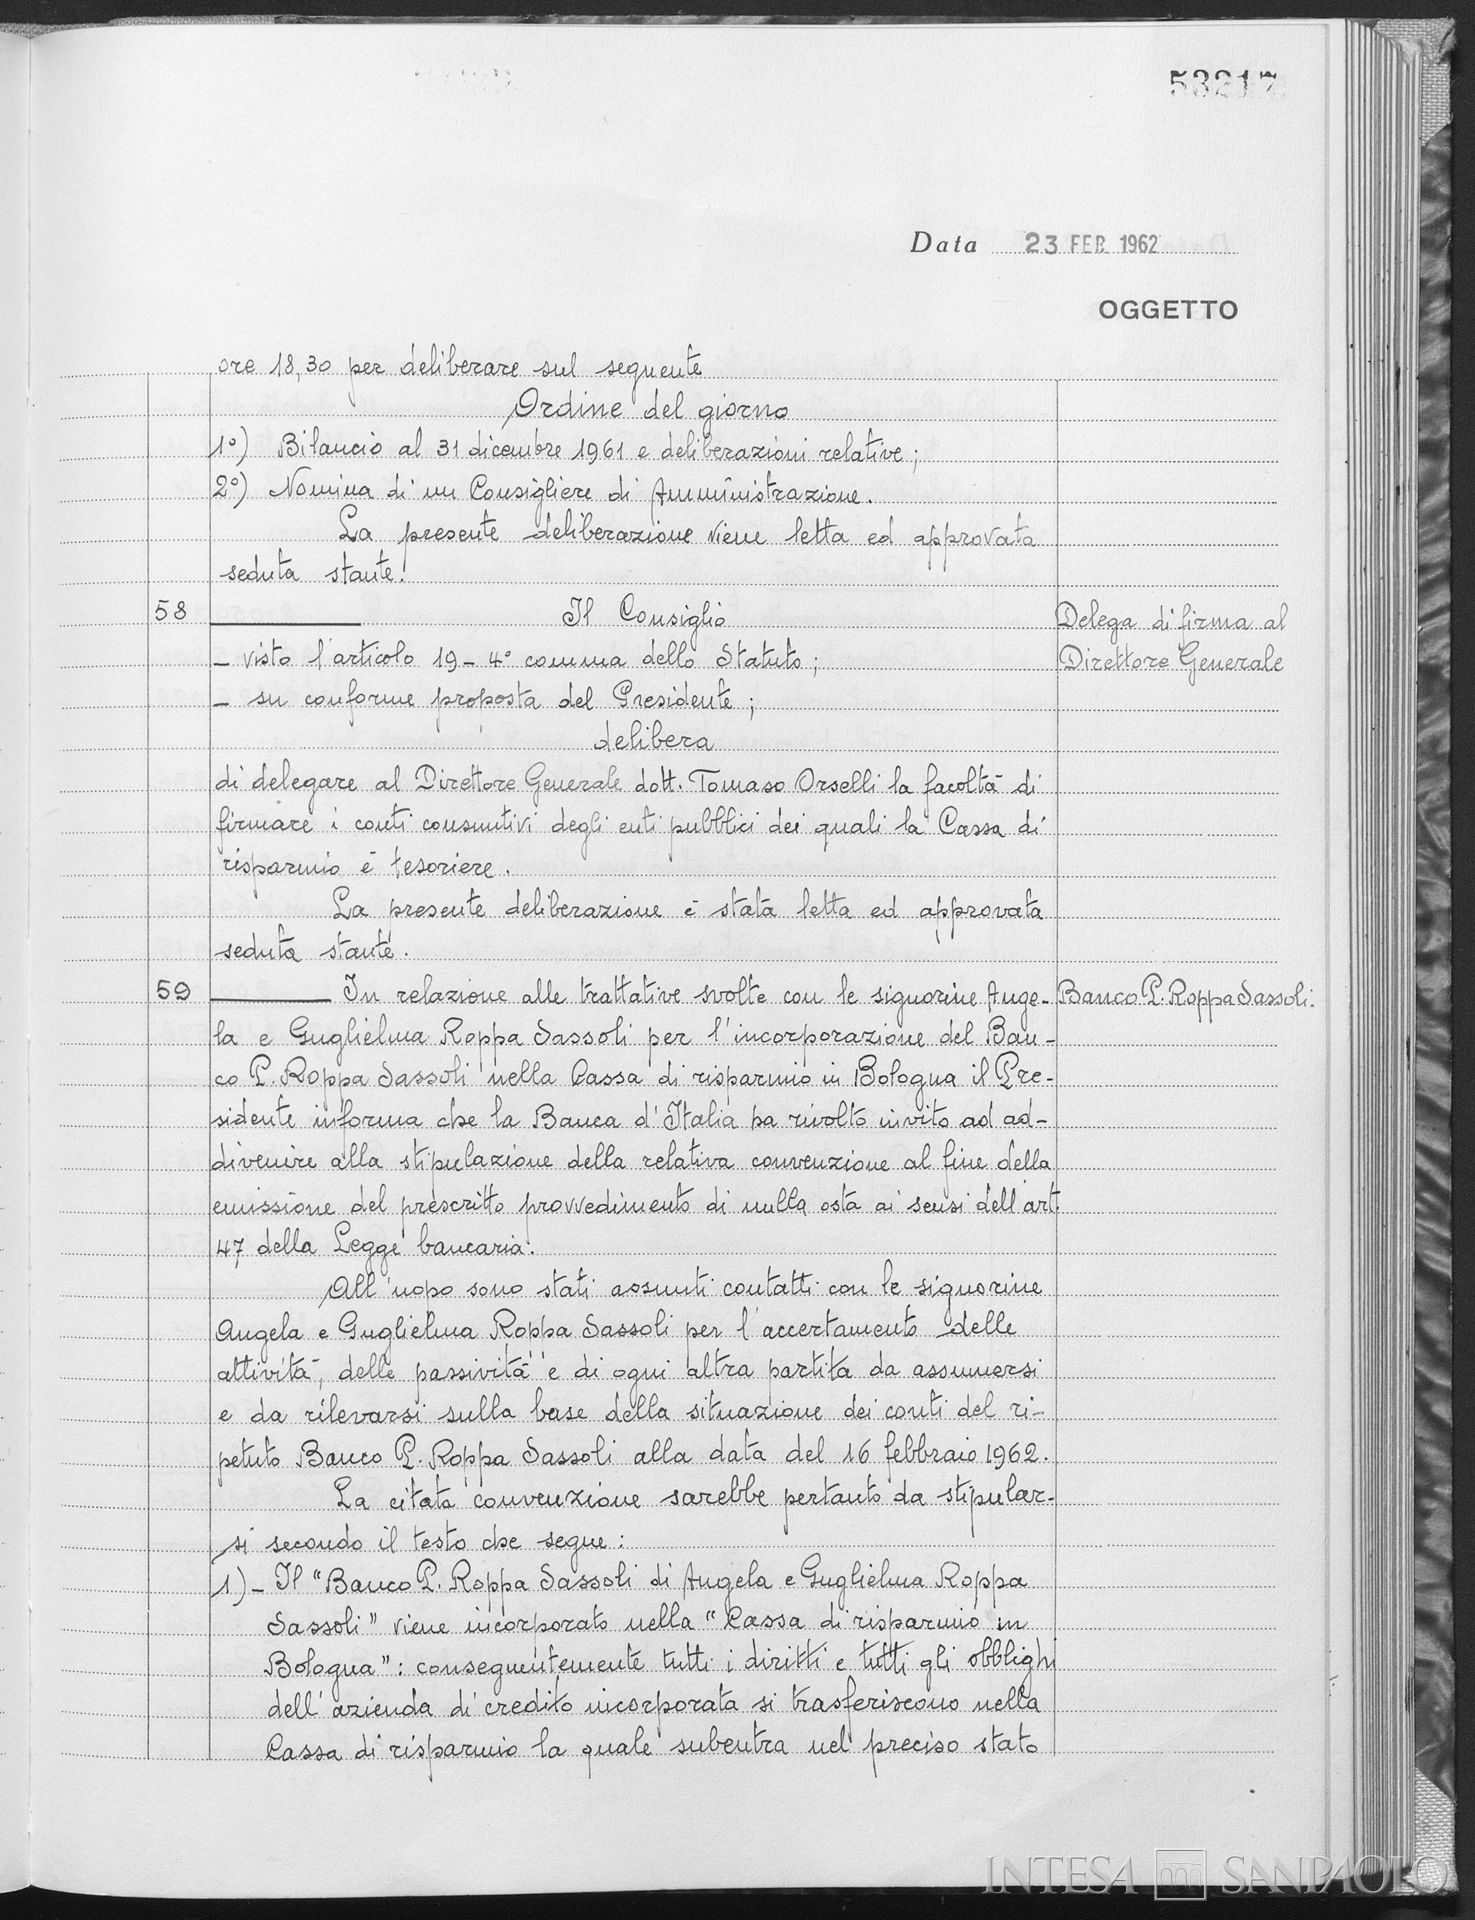 53217
Data 23 FEB. 1962
OGGETTO
ore 18,30 per deliberare sul seguente
Ordine del giorno
1°) Bilancio al 31 dicembre 1961 e deliberazioni relative;
2°) Nomina di un Consigliere di Amministrazione.
La presente deliberazione viene letta ed approvata
seduta stante.
58 Il Consiglio Delega di firma al
- visto l'articolo 19 - 4° comma dello Statuto; Direttore Generale
- su conforme proposta del Presidente;
delibera
di delegare al Direttore Generale dott. Tomaso Orselli la facoltà di
firmare i conti consuntivi degli enti pubblici dei quali la Cassa di
risparmio è tesoriere.
La presente deliberazione è stata letta ed approvata
seduta stante.
59 In relazione alle trattative svolte con le signorine Ange- Banco P. Roppa Sassoli.
la e Guglielma Roppa Sassoli per l'incorporazione del Ban-
co P. Roppa Sassoli nella Cassa di risparmio in Bologna il Pre-
sidente informa che la Banca d'Italia ha rivolto invito ad ad-
divenire alla stipulazione della relativa convenzione al fine della
emissione del prescritto provvedimento di nulla osta ai sensi dell'art.
47 della Legge bancaria.
All'uopo sono stati assunti contatti con le signorine
Angela e Guglielma Roppa Sassoli per l'accertamento delle
attività, delle passività e di ogni altra partita da assumersi
e da rilevarsi sulla base della situazione dei conti del ri-
petuto Banco P. Roppa Sassoli alla data del 16 febbraio 1962.
La citata convenzione sarebbe pertanto da stipular-
si secondo il testo che segue:
1) - Il "Banco P. Roppa Sassoli di Angela e Guglielma Roppa
Sassoli" viene incorporato nella "Cassa di risparmio in
Bologna": conseguentemente tutti i diritti e tutti gli obblighi
dell'azienda di credito incorporata si trasferiscono nella
Cassa di risparmio la quale subentra nel preciso stato
INTESA SANPAOLO